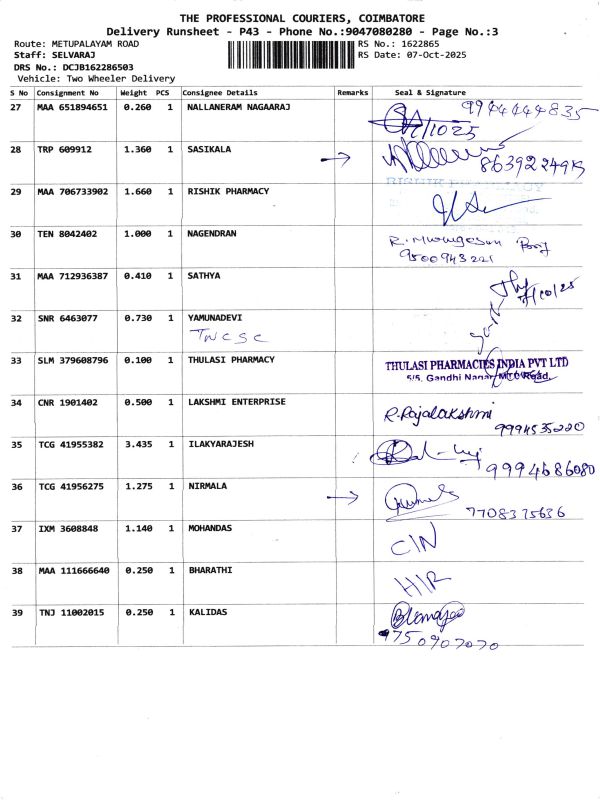 THE PROFESSIONAL COURIERS, COIMBATORE
Delivery Runsheet - P43 - Phone No.:9047080280 - Page No.:3
Route: METUPALAYAM ROAD RS No.: 1622865
Staff: SELVARAJ RS Date: 07-Oct-2025
DRS No.: DCJB162286503
Vehicle: Two Wheeler Delivery
S No Consignment No Weight PCS Consignee Details Remarks Seal & Signature
27 MAA 651894651 0.260 1 NALLANERAM NAGAARAJ 9944444835
7/10/25
28 TRP 609912 1.360 1 SASIKALA
29 MAA 706733902 1.660 1 RISHIK PHARMACY RISHIK PHARMACY
30 TEN 8042402 1.000 1 NAGENDRAN R. Murugesan
9500943221
31 MAA 712936387 0.410 1 SATHYA 7/10/25
32 SNR 6463077 0.730 1 YAMUNADEVI
TNCSC
33 SLM 379608796 0.100 1 THULASI PHARMACY THULASI PHARMACIES INDIA PVT LTD
5/5, Gandhi Nanar, MTC Road.
34 CNR 1901402 0.500 1 LAKSHMI ENTERPRISE R. Rajalakshmi
9994535220
35 TCG 41955382 3.435 1 ILAKYARAJESH
9994686080
36 TCG 41956275 1.275 1 NIRMALA
7708375636
37 IXM 3608848 1.140 1 MOHANDAS C/N
38 MAA 111666640 0.250 1 BHARATHI H/R
39 TNJ 11002015 0.250 1 KALIDAS
9750907070